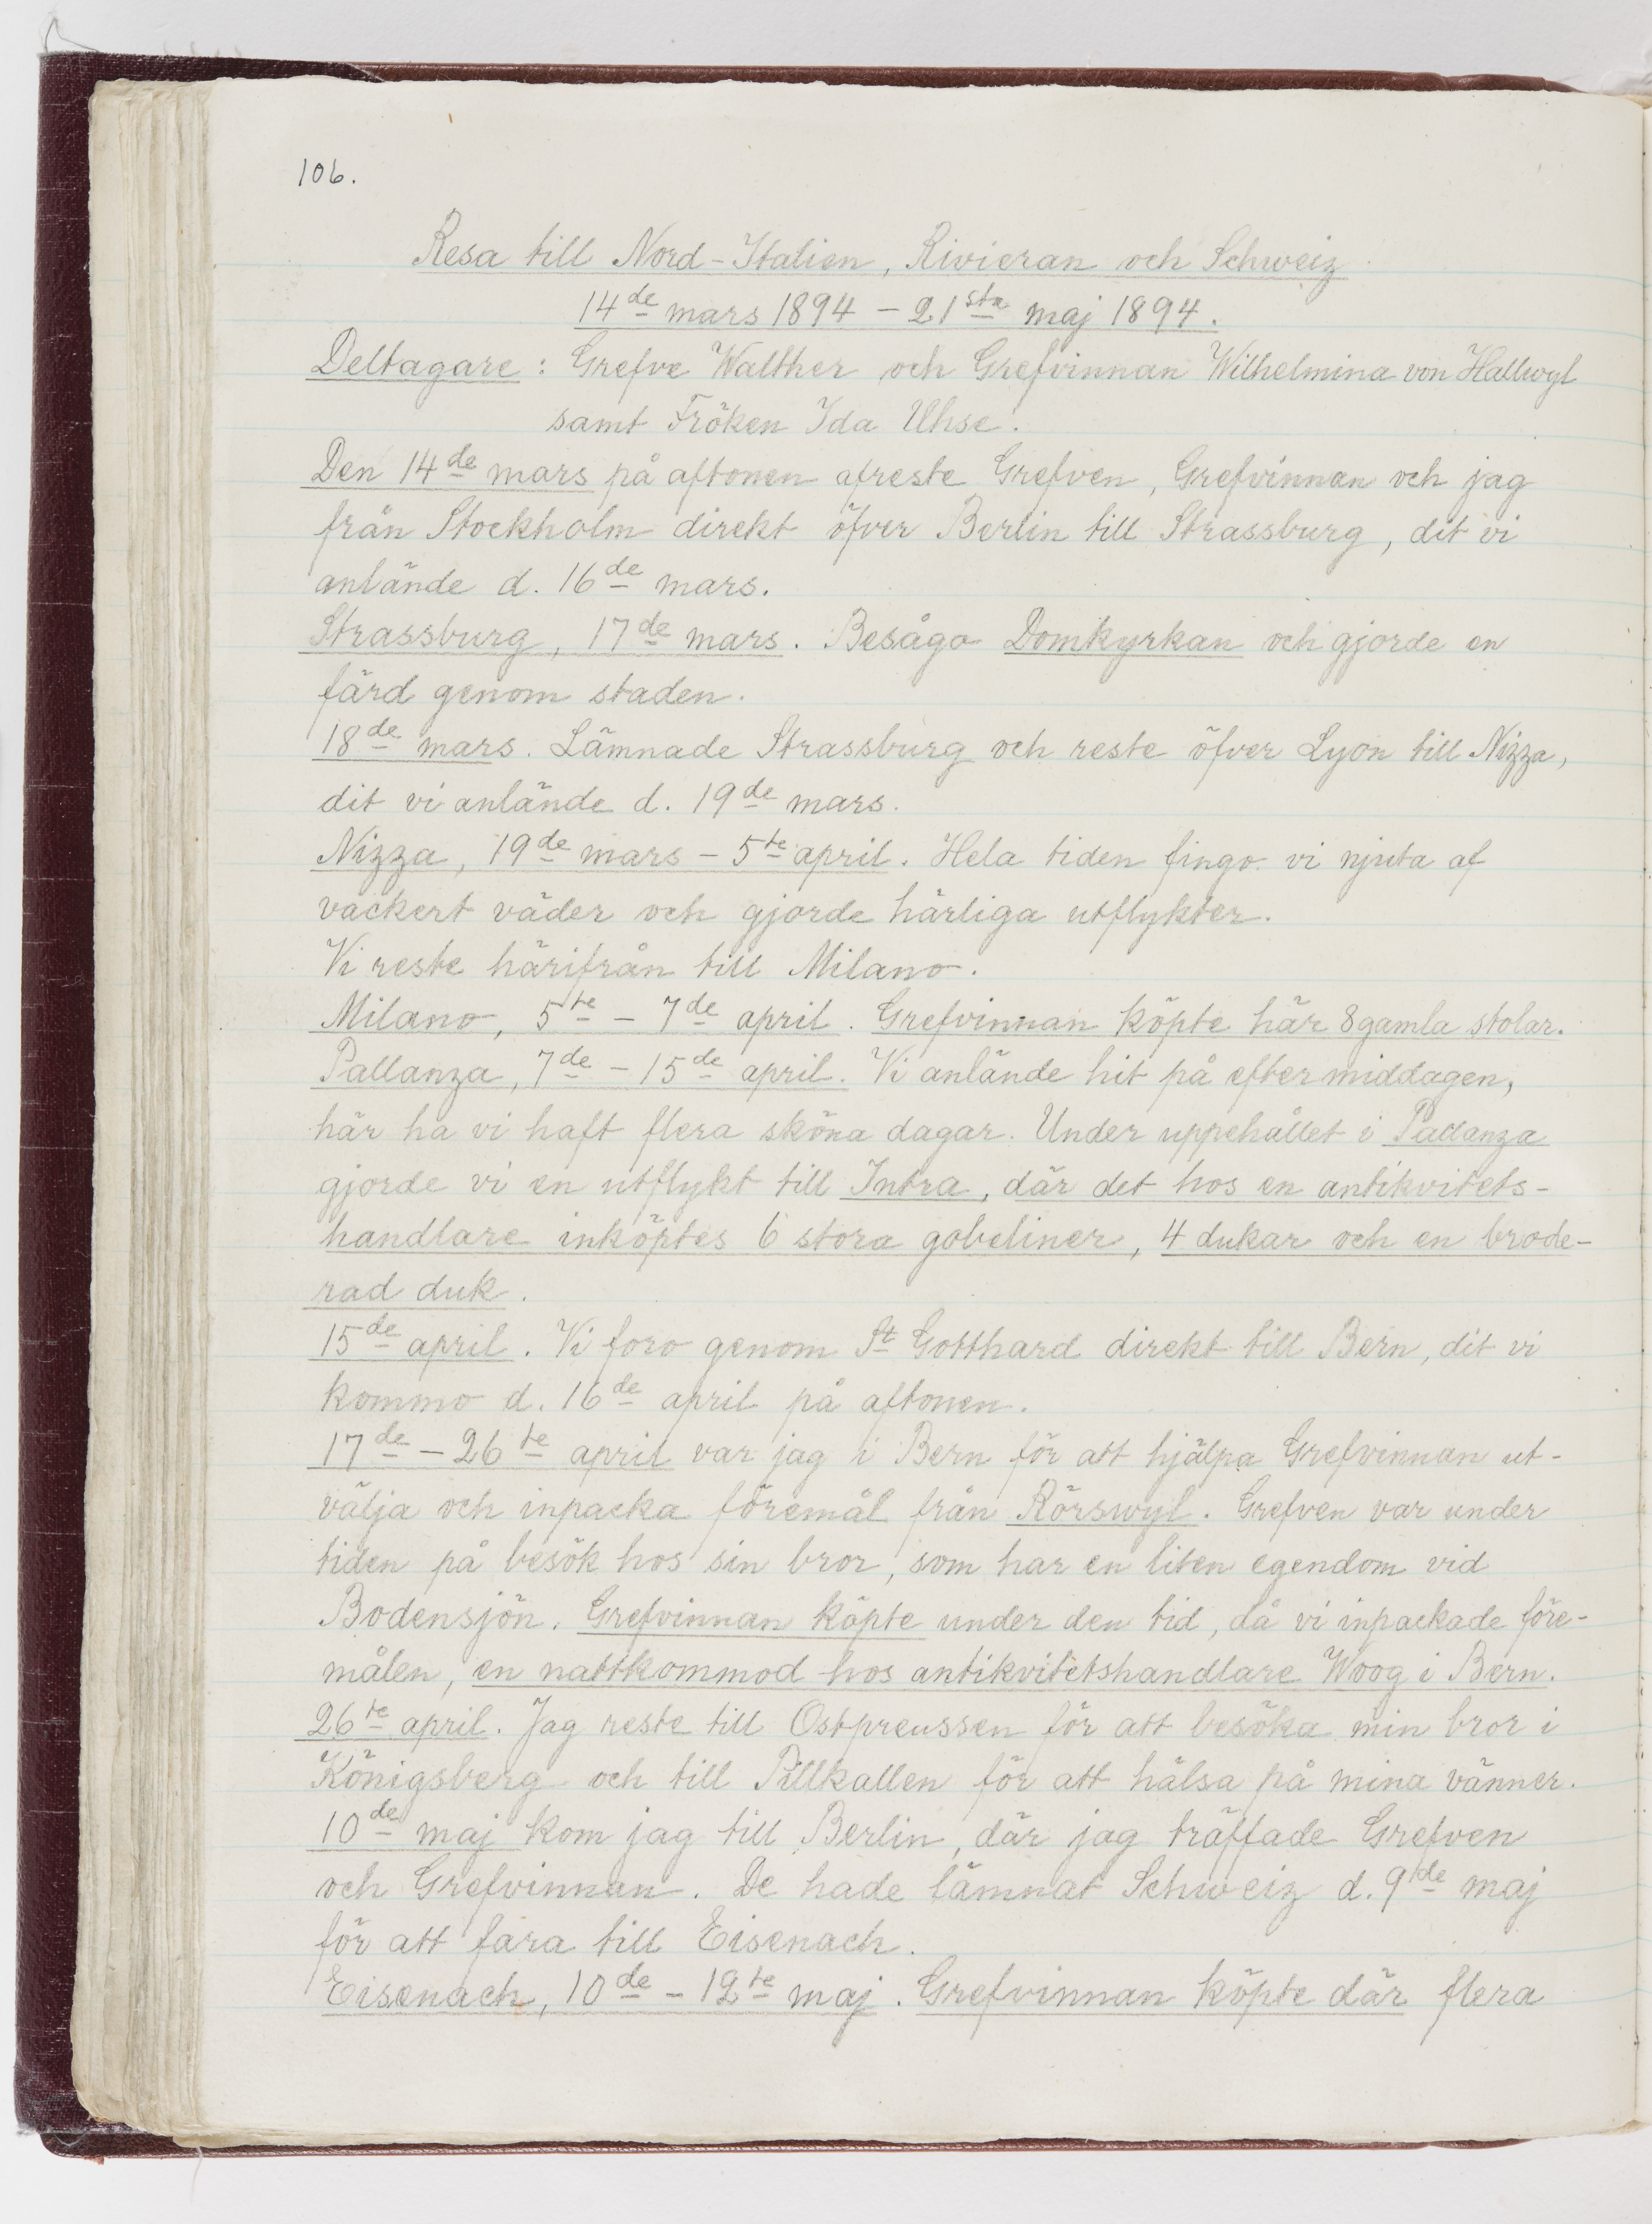 106.
Resa till Nord-Italien, Rivieran och Schweiz
14de mars 1894 – 21sta maj 1894.
Deltagare: Grefve Walther och Grefvinnan Wilhelmina von Hallwyl
samt Fröken Ida Uhse.
Den 14de mars på aftonen afreste Grefven, Grefvinnan och jag
från Stockholm direkt öfver Berlin till Strassburg, dit vi
anlände d. 16de mars.
Strassburg, 17de mars. Besågo Domkyrkan och gjorde en
färd genom staden.
18de mars. Lämnade Strassburg och reste öfver Lyon till Nizza,
dit vi anlände d. 19de mars.
Nizza, 19de mars – 5te april. Hela tiden fingo vi njuta af
vackert väder och gjorde härliga utflykter.
Vi reste härifrån till Milano.
Milano, 5te – 7de april. Grefvinnan köpte här 8 gamla stolar.
Pallanza, 7de – 15de april. Vi anlände hit på eftermiddagen,
här ha vi haft flera sköna dagar. Under uppehållet i Pallanza
gjorde vi en utflykt till Intra, där det hos en antikvitets-
handlare inköptes 6 stora gobeliner, 4 dukar och en brode-
rad duk.
15de april. Vi foro genom St Gotthard direkt till Bern, dit vi
kommo d. 16de april på aftonen.
17de – 26te april var jag i Bern för att hjälpa Grefvinnan ut-
välja och inpacka föremål från Rörswyl. Grefven var under
tiden på besök hos sin bror, som har en liten egendom vid
Bodensjön. Grefvinnan köpte under den tid, då vi inpackade före-
målen, en nattkommod hos antikvitetshandlare Woog i Bern.
26te april. Jag reste till Ostpreussen för att besöka min bror i
Königsberg och till Pillkallen för att hälsa på mina vänner.
10de maj kom jag till Berlin, där jag träffade Grefven
och Grefvinnan. De hade lämnat Schweiz d. 9de maj
för att fara till Eisenach.
Eisenach, 10de – 12te maj. Grefvinnan köpte där flera